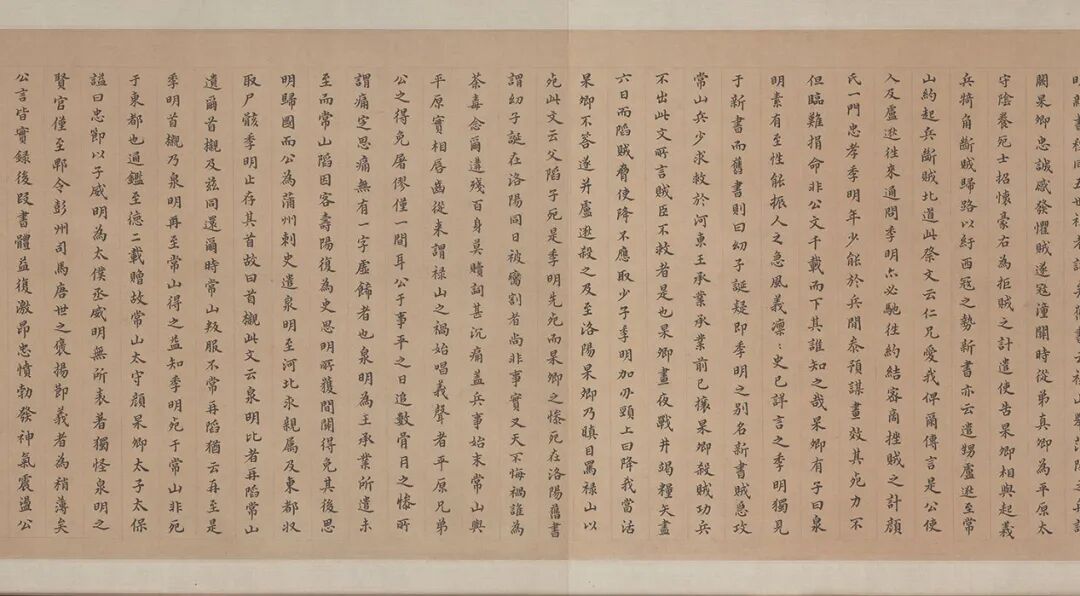 關杲卿忠誠感發懼賊遂寇潼關時從弟真卿為平原太
守陰養死士招懷豪右為拒賊之計遣使告杲卿相與起義
兵犄角斷賊歸路以紓西寇之勢新書亦云遣甥盧逖至常
山約起兵斷賊北道此祭文云仁兄愛我俾爾傳言是公使
入及盧逖徃來通問季明亦必馳徃約結密商挫賊之計顏
氏一門忠孝季明年少能於兵間泰預謀畫效其死力不
但臨難捐命非公文千載而下其誰知之哉杲卿有子曰泉
明素有至性能振人之急風義凛〻史已詳言之季明獨見
于新書而舊書則曰幼子誕疑即季明之别名新書賊急攻
常山兵少求救於河東王承業承業前已攘杲卿殺賊功兵
不出此文所言賊臣不救者是也杲卿晝夜戰井竭糧矢盡
六日而陷賊脅使降不應取少子季明加刃頸上曰降我當活
杲卿不答遂并盧逖殺之及至洛陽杲卿乃瞋目罵祿山以
死此文云父陷子死是季明先死而杲卿之慘死在洛陽舊書
謂幼子誕在洛陽同日被臠割者尚非事實又天不悔禍誰為
荼毒念爾遘殘百身莫贖詞甚沉痛蓋兵事始末常山與
平原實相唇齒從来謂祿山之禍始唱義聲者平原兄弟
公之得免屠僇僅一間耳公于事平之日追數骨月之慘所
謂痛定思痛無有一字虛飾者也泉明為王承業所遣未
至而常山陷因客壽陽復為史思明所獲間關得免其後思
明歸國而公為蒲州刺史遣泉明至河北求親属及東都収
取尸骸季明止存其首故曰首櫬此文云泉明比者再陷常山
遺爾首櫬及茲同還爾時常山叛服不常再陷猶云再至是
季明首櫬乃泉明再至常山得之益知季明死于常山非死
于東都也通鑑至德二載贈故常山太守顏杲卿太子太保
謚曰忠節以子威明為太僕丞威明無所表著獨怪泉明之
賢官僅至郫令彭州司馬唐世之褒揚節義者為稍薄矣
公言皆實録後段書體益復激昂忠憤勃發神氣震盪公